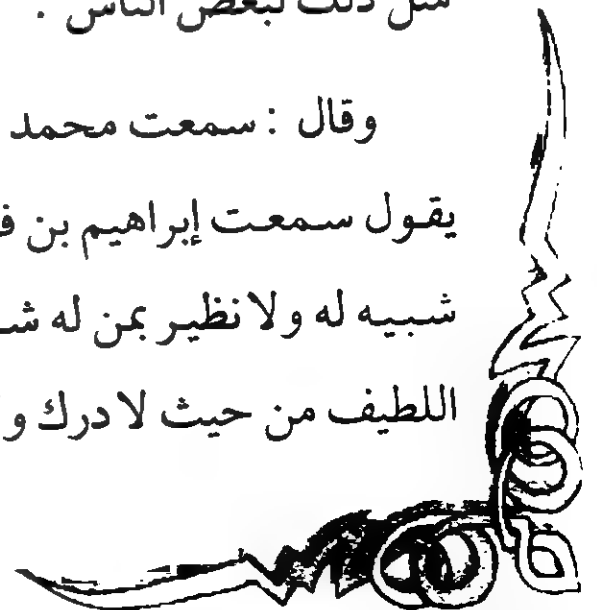 مثل ذلك لبعض الناس .
وقال : سمعت محمد
يقول سمعت إبراهيم بن
شبيه له ولا نظير بمن له
اللطيف من حيث لا درك و